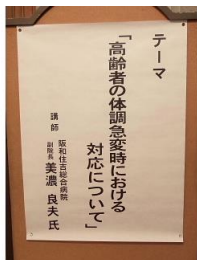 テーマ
「高齢者の体調急変時における
対応について」
講師
阪和住吉総合病院
副院長 美濃 良夫 氏